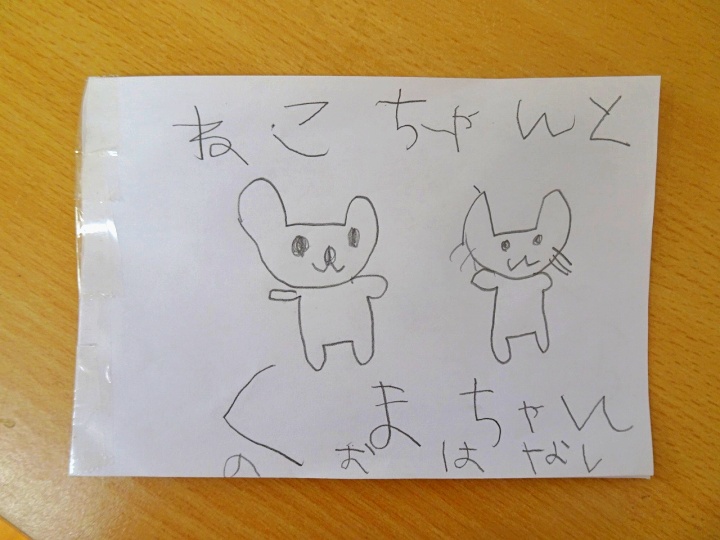 ねこちゃんと
くまちゃん
のおはなし